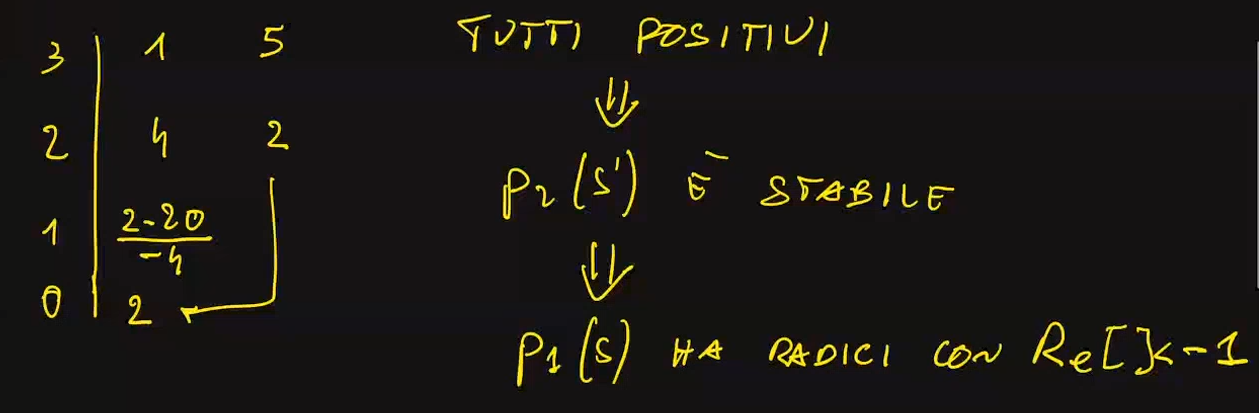 3 | 1 5
2 | 4 2
1 | \frac{2-20}{-4}
0 | 2
TUTTI POSITIVI
⇓
P2(s') È STABILE
⇓
P1(s) HA RADICI CON Re[]<-1